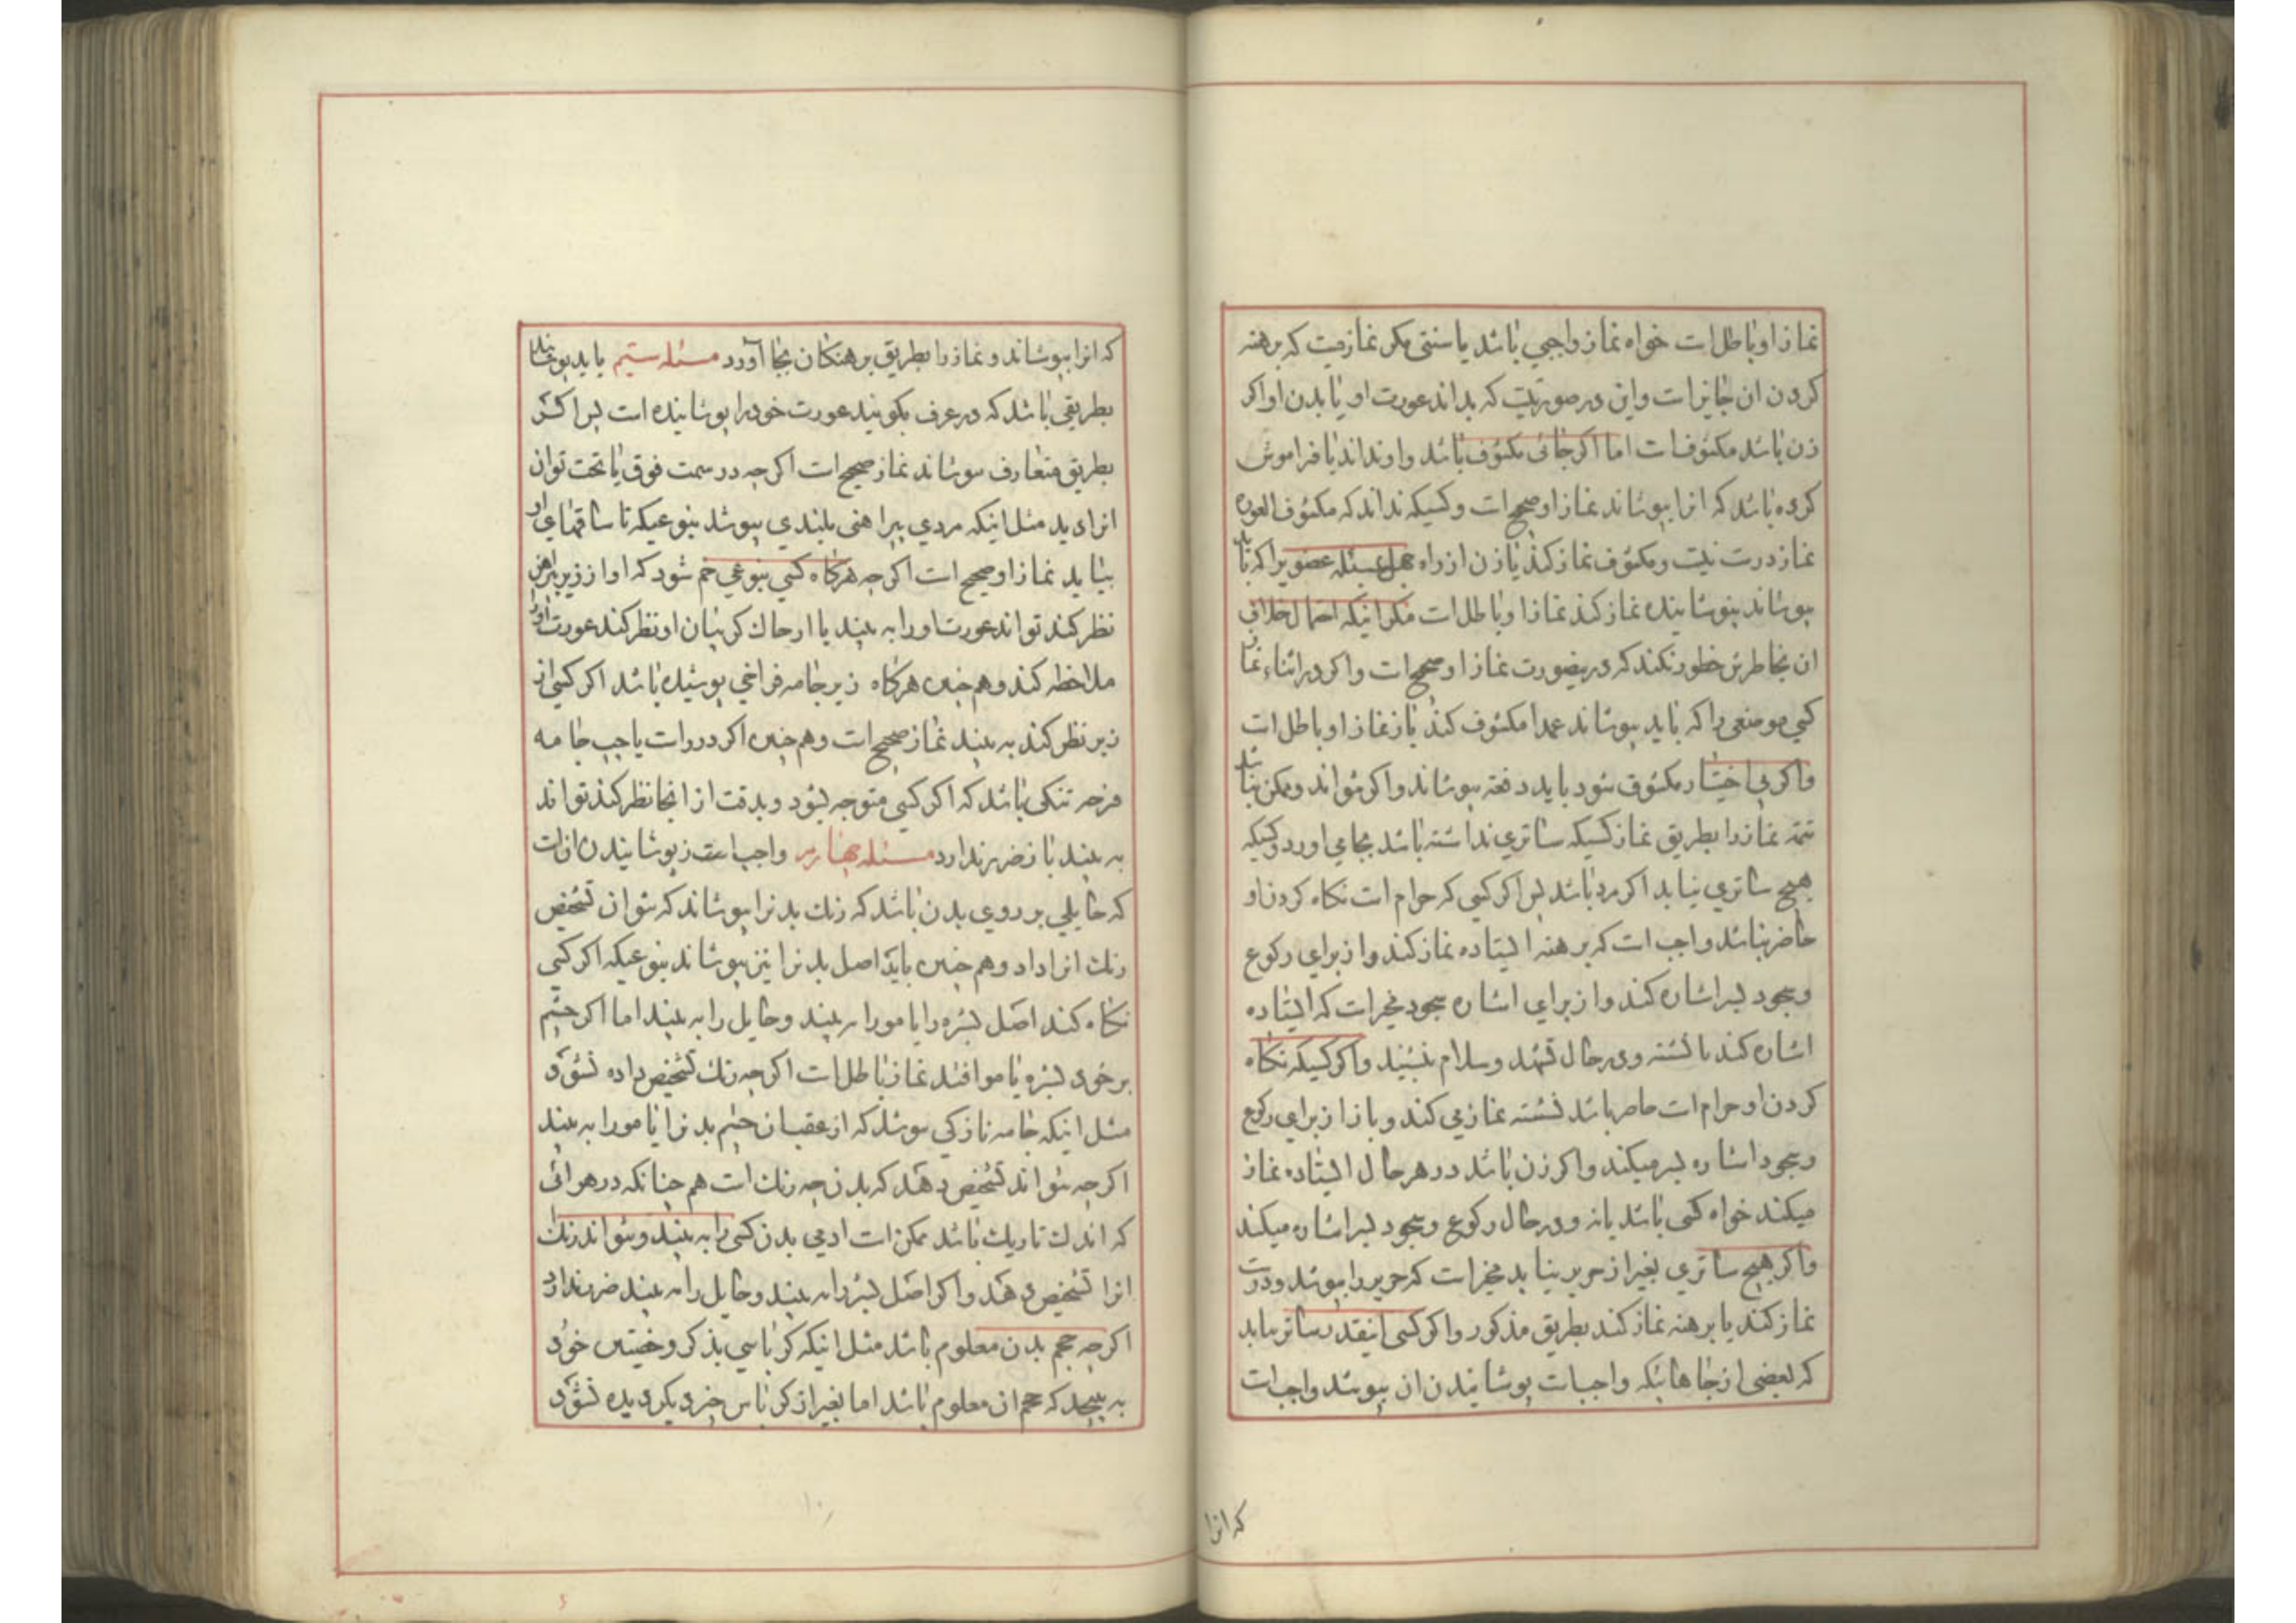 نماز او باطل است خواه نماز واجبی باشد یا سنتی مکر نماز میت که برهنه
کردن ان جایز است واین در صورتیست که بداند عورت او یا بدن او اکر
زن باشد مکشوفست اما اکر جائی مکشوف باشد و او نداند یا فراموش
کرده باشد که انرا بپوشاند نماز او صحیح است وکسیکه نداند که مکشوف العوره
نماز درست نیست ومکشوف نماز کند یا زن از راه جهل بمسئله عضویرا که باید
بپوشاند بنوشانیده نماز کند نماز او باطل است مکر انیکه احتمال خلاف
ان بخاطرش خطور نکند که درینصورت نماز او صحیح است واکر در اثناء نماز
کسی موضعی را که باید بپوشاند عمدا مکشوف کند باز نماز او باطل است
واکر بی اختیار مکشوف شود باید دفعة بپوشاند واکر نتواند وممکن نباشد
تتمه نماز را بطریق نماز کسیکه ساتری نداشته باشد بجامی اورد وکسیکه
هیچ ساتری نیابد اکر مرد باشد پس اکر کسی که حرام است نکاه کردن او
حاضر نباشد واجب است که برهنه ایستاده نماز کند واز برای رکوع
وسجود بسر اشاره کند واز برای اشاره سجود مخیر است که ایستاده
اشاره کند یا نشسته ودر حال تشهد وسلام بنشیند واکر کسیکه نکاه
کردن او حرام است حاضر باشد نشسته نماز می کند وباز از برای رکوع
وسجود اشاره بسر میکند واکر زن باشد در هر حال ایستاده نماز
میکند خواه کسی باشد یا نه ودر حال رکوع وسجود بسر اشاره میکند
واکر هیچ ساتری بغیر از حریر نیابد مخیر است که حریر را بپوشد ودر ان
نماز کند یا برهنه نماز کند بطریق مذکور واکر کسی اینقدر ساتر بیابد
که بعضی از جاهائیکه واجبست پوشانیدن ان بپوشد واجب است
که انرا
که انرا بپوشاند ونماز را بطریق برهنکان بجا آورد مسئله سیم باید پوشانیدن
بطریقی باشد که در عرف بکویند عورت خود را پوشانیده است پس اکر کسی
بطریق متعارف بپوشاند نماز صحیح است اکرچه در سمت فوق یا تحت توان
انرا دید مثل اینکه مردی پیراهنی بلندی بپوشد بنوعیکه تا ساقهای او
بیاید نماز او صحیح است اکرچه هرکاه کسی بنوعی خم شود که او از زیر پیراهن
نظر کند تواند عورت او را به بیند یا از چاک کریبان او نظر کند عورت او را
ملاحظه کند وهم چنین هرکاه زیر جامه فراخی پوشیده باشد اکر کسی از
زیر نظر کند به بیند نماز صحیح است وهم چنین اکر در رانت یا جیب جامه
فرجه تنکی باشد که اکر کسی متوجه بشود وبدقت از انجا نظر کند تواند
به بیند باز ضرر ندارد مسئله چهارم واجب است در پوشانیدن انست
که حایلی بر روی بدن باشد که رنک بدنرا بپوشاند که نتوان تشخیص
رنک انرا داد وهم چنین باید اصل بدنرا نیز بپوشاند بنوعیکه اکر کسی
نکاه کند اصل بشره را یا مو را نه بیند وحایل را به بیند اما اکر چشم
بر خود بشره یا مو افتد نماز باطل است اکرچه رنک تشخیص داده نشود
مثل اینکه جامه نازکی بپوشد که از عقب ان چشم بدنرا یا مو را به بیند
اکرچه نتواند تشخیص دهد که بدن چه رنک است هم چنانکه در هوائی
که اندک تاریک باشد ممکن است ادمی بدن کسی را به بیند ونتواند رنک
انرا تشخیص دهد واکر اصل بشره را نه بیند وحایل را به بیند ضرر ندارد
اکرچه حجم بدن معلوم باشد مثل اینکه کرباسی بذکر وخصیتین خود
به پیچد که حجم ان معلوم باشد اما بغیر از کرباس چیز دیکر دیده نشود
۱۰